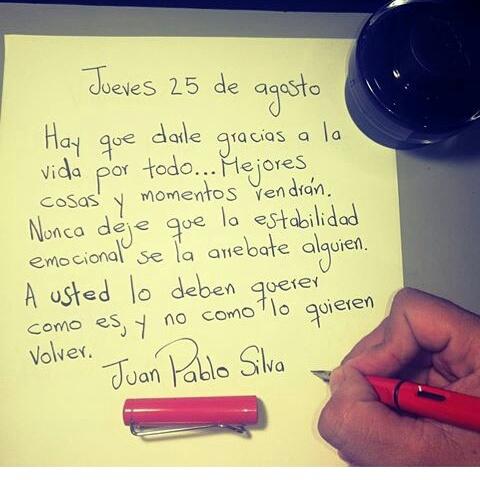 Jueves 25 de agosto
Hay que darle gracias a la
vida por todo... Mejores
cosas y momentos vendrán.
Nunca deje que la estabilidad
emocional se la arrebate alguien.
A usted lo deben querer
como es, y no como lo quieren
volver.
Juan Pablo Silva